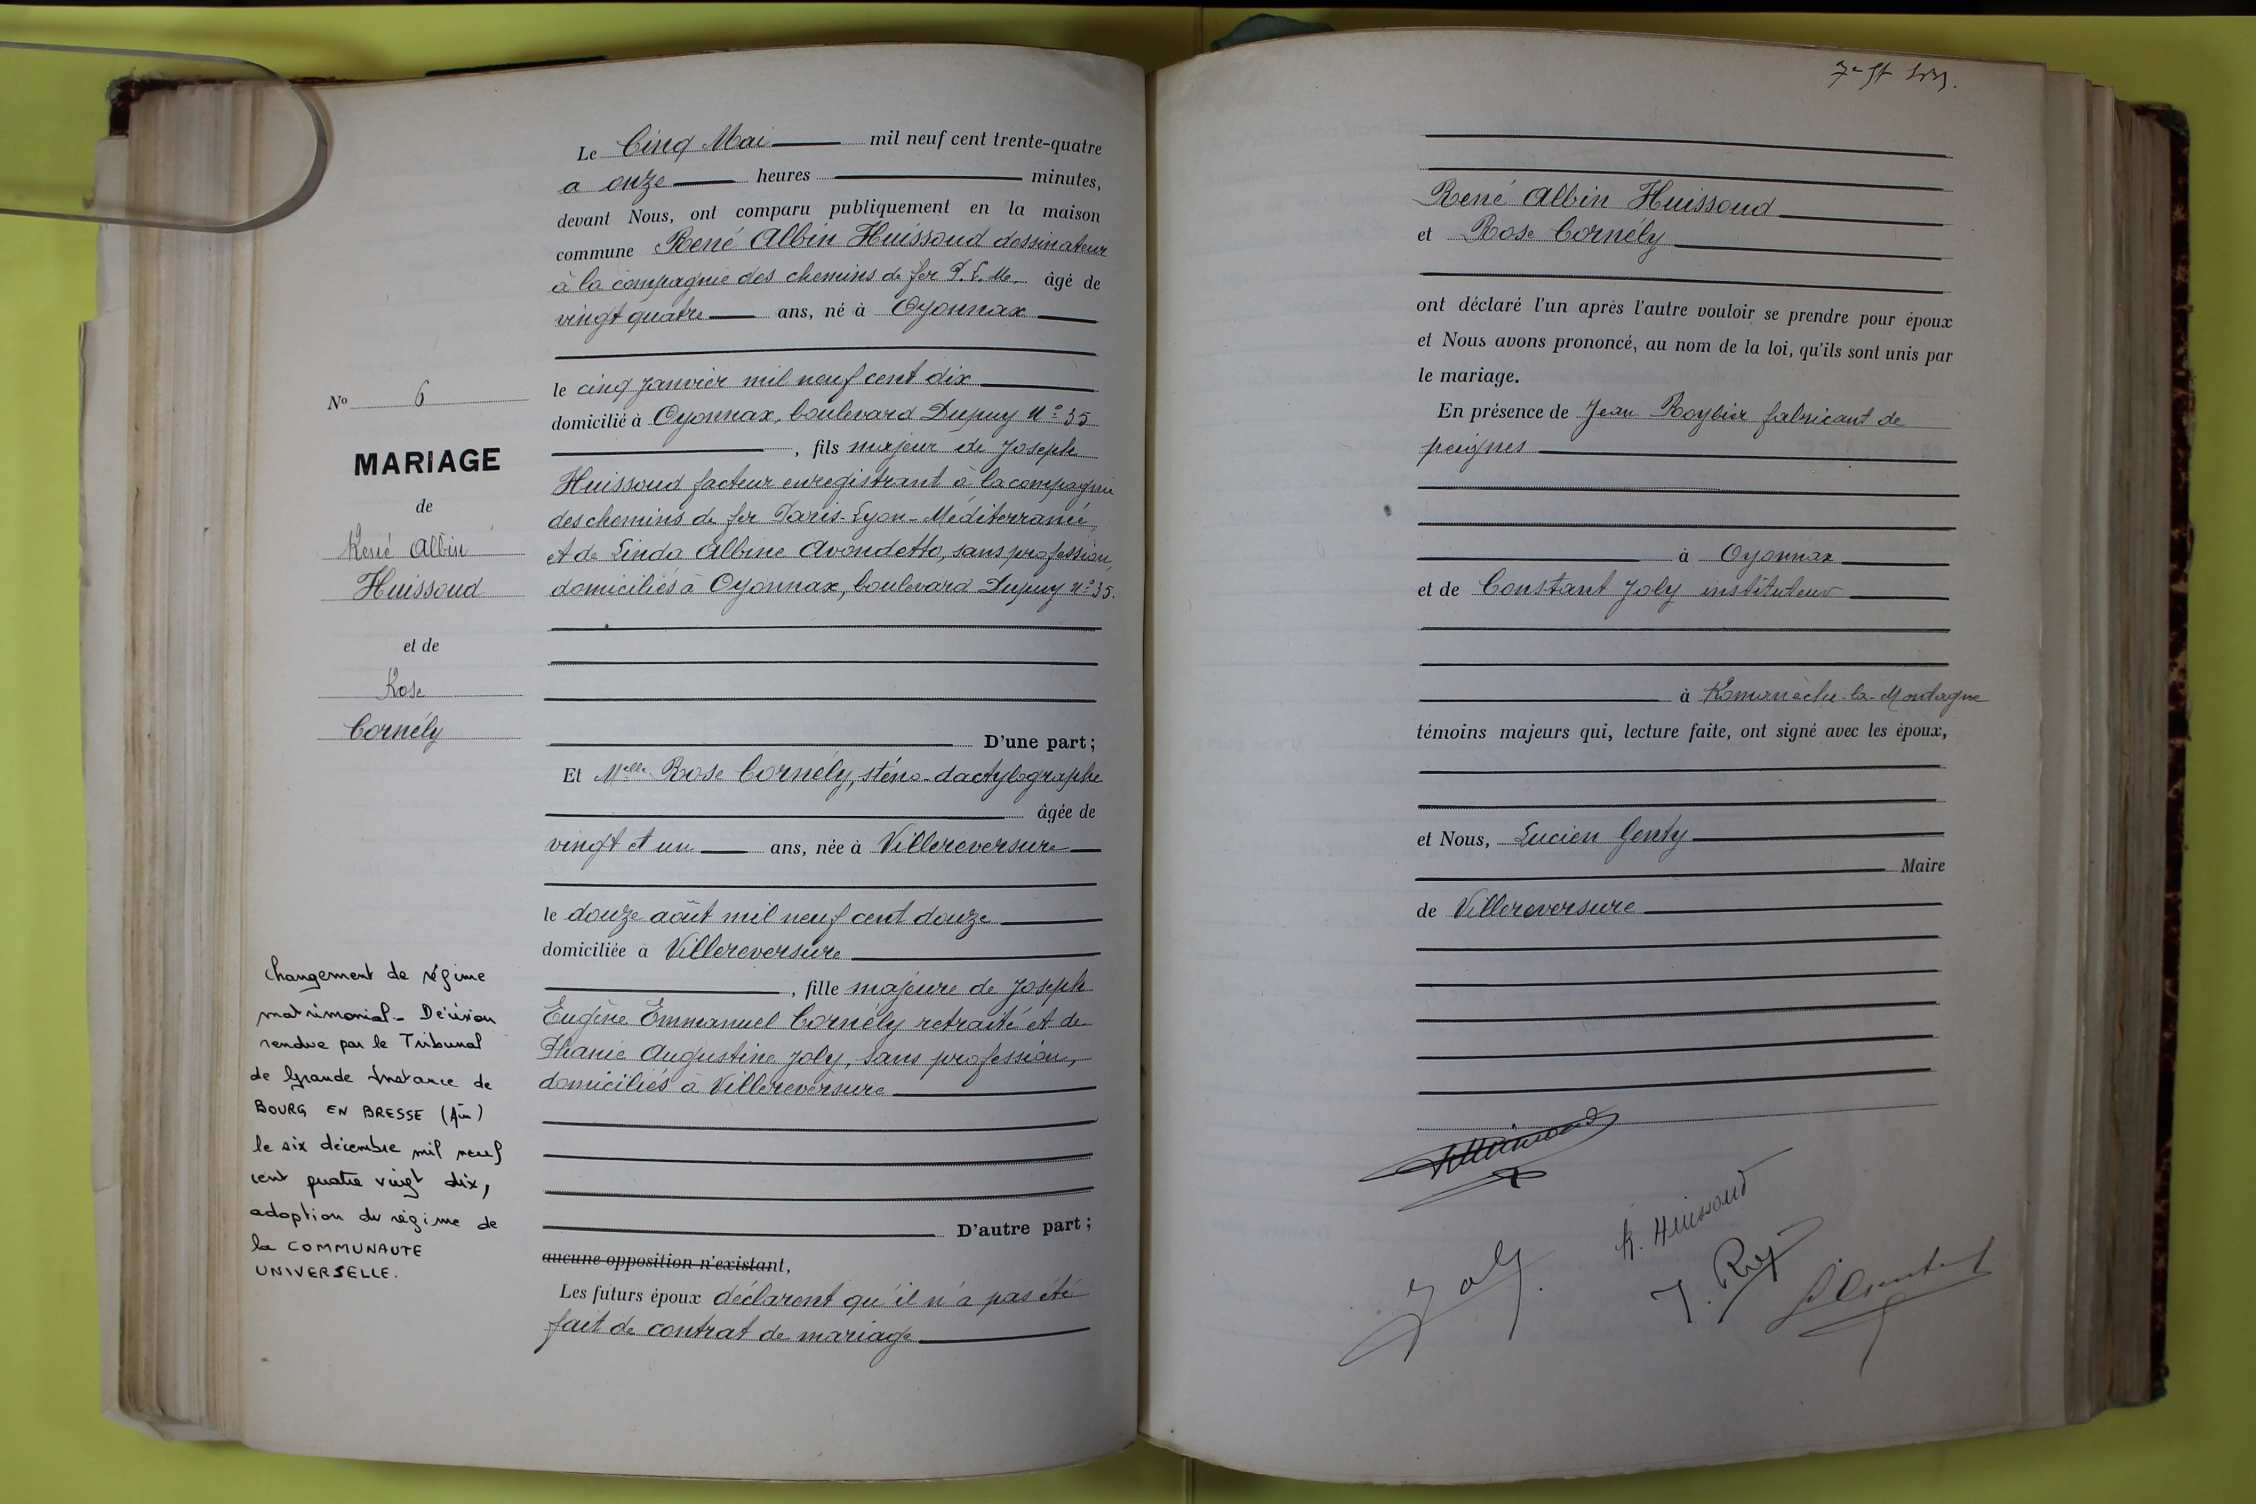 Le Cinq Mai mil neuf cent trente-quatre
a onze heures minutes,
devant Nous, ont comparu publiquement en la maison
commune René Albin Huissoud dessinateur
à la compagnie des chemins de fer P. L. M. âgé de
vingt quatre ans, né à Oyonnax
le cinq janvier mil neuf cent dix
domicilié à Oyonnax, boulevard Dupuy N° 35
, fils majeur de Joseph
Huissoud facteur enregistrant à la compagnie
des chemins de fer Paris-Lyon-Méditerranée,
et de Linda Albine Avondetto, sans profession,
domiciliés à Oyonnax, boulevard Dupuy n° 35.
D'une part;
Et Melle Rose Cornély, sténo-dactylographe
âgée de
vingt et un ans, née à Villereversure
le douze août mil neuf cent douze
domiciliée à Villereversure
, fille majeure de Joseph
Eugène Emmanuel Cornély retraité et de
Phanie Augustine Joly, sans profession,
domiciliés à Villereversure
D'autre part;
aucune opposition n'existant,
Les futurs époux déclarent qu'il n'a pas été
fait de contrat de mariage
No 6
MARIAGE
de
René Albin
Huissoud
et de
Rose
Cornély
Changement de régime
matrimonial - Décision
rendue par le Tribunal
de Grande Instance de
BOURG EN BRESSE (Ain)
le six décembre mil neuf
cent quatre vingt dix,
adoption du régime de
la COMMUNAUTE
UNIVERSELLE.
René Albin Huissoud
et Rose Cornély
ont déclaré l'un après l'autre vouloir se prendre pour époux
et Nous avons prononcé, au nom de la loi, qu'ils sont unis par
le mariage.
En présence de Jean Roybier fabricant de
peignes
à Oyonnax
et de Constant Joly instituteur
à Romanèche-la-Montagne
témoins majeurs qui, lecture faite, ont signé avec les époux,
et Nous, Lucien Genty
Maire
de Villereversure
R. Huissoud
Joly